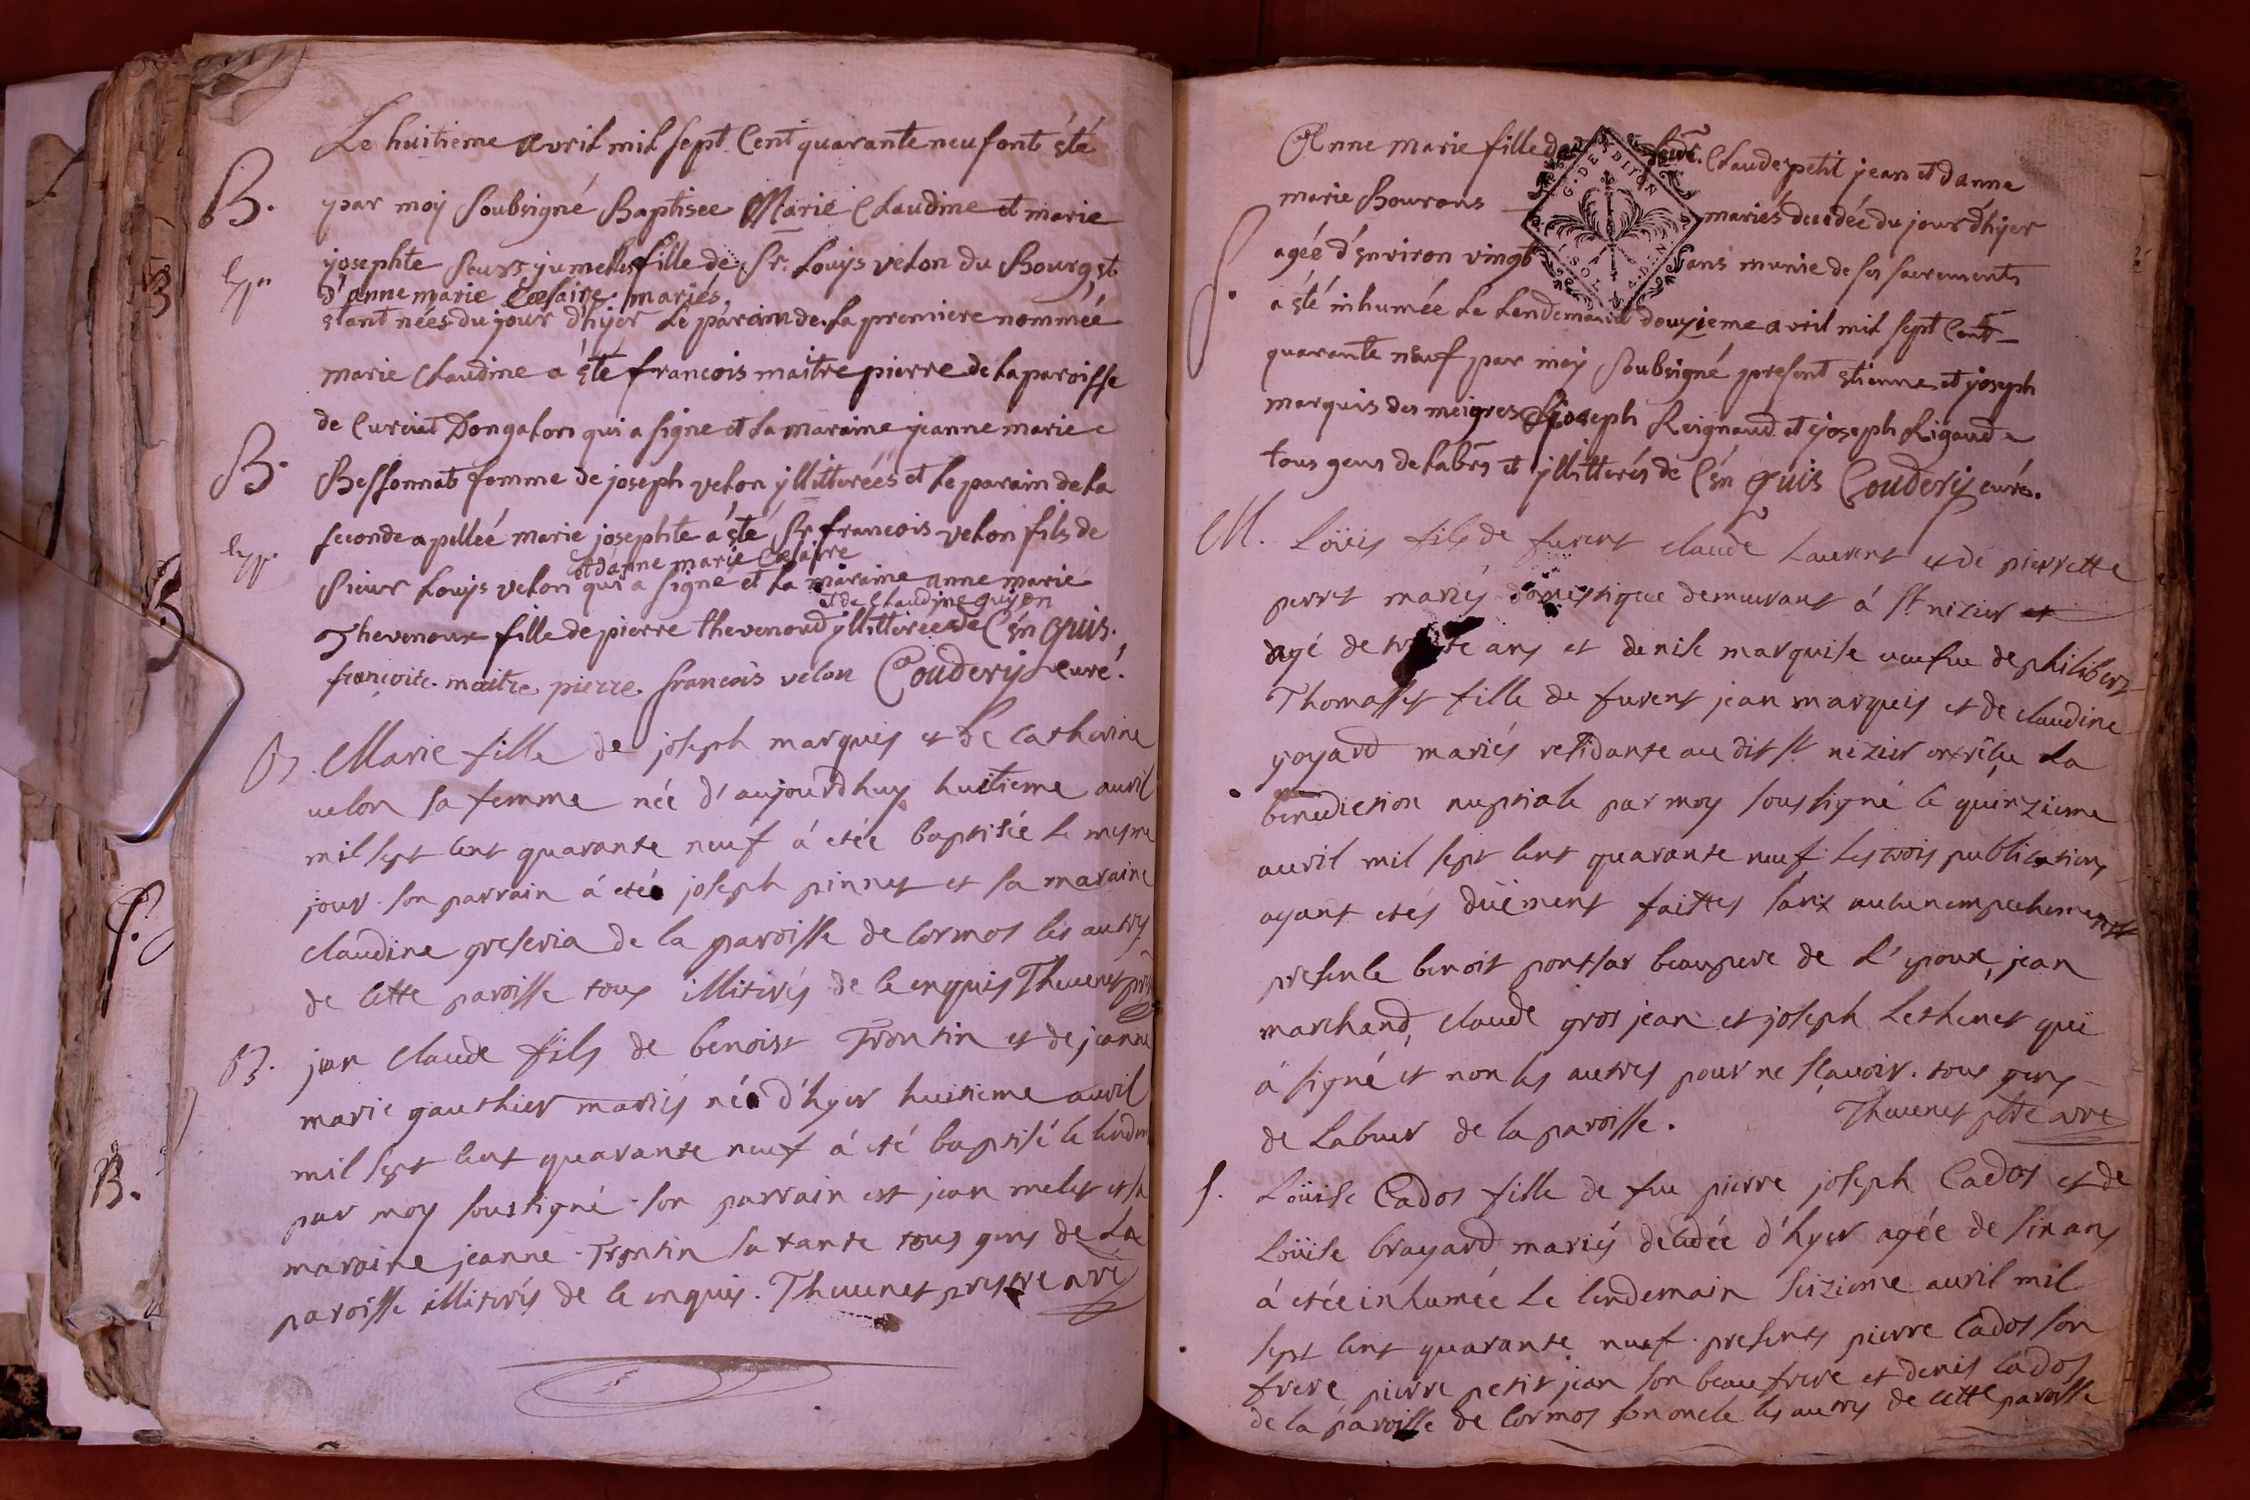 Le huitieme avril mil sept Cent quarante neuf ont été
B. par moy soubsigné Baptisee Marie Claudine et marie
josephte seurs jumelles fille de Sr. Louys velon du Bourg et
d'anne marie Cæsaire mariés
etant nées du jour d'hyer Le parain de la premiere nommée
marie Claudine a été francois maitre pierre de la paroisse
de Curciat Dongalon qui a signe et la maraine jeanne marie
B. Bessonnat femme de joseph velon yllitterées et Le parain de la
seconde apelleé marie josephte a été Sr. francois velon fils de
et danne marie Cæsaire
sieur Louys velon qui a signe et la maraine anne marie
et de Claudine guyon
Thevenoux fille de pierre thevenoud yllitterees de C'en quis.
francois. maitre. pierre. francois velon Coudery curé.
B. Marie fille de joseph marquis et de Catherine
velon sa femme née d'aujourdhuy huitieme auril
mil sept cent quarante neuf á etée baptisée le mesme
jour. son parrain á eté joseph pinnet et sa maraine
claudine greseria de la paroisse de Cormos les autres
de cette paroisse tous illiterés de ce enquis Theuenet ptre
B. jean claude fils de benoist Trontin et de jeanne
marie gauthier mariés né d'hyer huitieme auril
mil sept cent quarante neuf á eté baptisé le lendem
par moy soussigné. son parrain est jean melet et sa
maraine jeanne Trontin sa tante tous gens de La
paroisse illiterés de ce enquis. Theuenet prestre
Anne marie fille de Claude petit jean et danne
marie Bourons mariés decedée du jour d'hyer
ageé d'Environ vingt ans munie de ses sacrements
S. a été inhumée Le Lendemain douzieme avril mil sept Cent
quarante neuf par moy soubsigné present etienne et joseph
marquis des meigres joseph Reignaud et joseph Rigaud
tous gens de labrs et yllitterés de C'en quis Coudery curé.
M. Loüis fils de furent claude Laurent et de pierrette
perret mariés domestique demeurant á St nizier et
agé de trente ans et denise marquise ueufue de philibert
Thomasset fille de furent jean marquis et de claudine
yoyard mariés residante au dit St nizier ont recu La
benediction nuptiale par moy soussigné le quinzieme
auril mil sept cent quarante neuf les trois publications
ayant etés düement faittes sans aucun empechement
presence benoit pontsar beaupere de L'epoux, jean
marchand, claude gros jean et joseph Lethenet qui
á signé et non les autres pour ne sçauoir. tous gens
de Labeur de la paroisse. Theuenet ptre
S. Loüise Cados fille de feu pierre joseph Cados et de
Loüise brayard mariés decedée d'hyer agée de six ans
á etée inhumée le lendemain seizieme auril mil
sept cent quarante neuf. presents pierre Cados son
frere pierre petit jean son beau frere et denis Cados
de la paroisse de Cormos son oncle les autres de cette paroisse